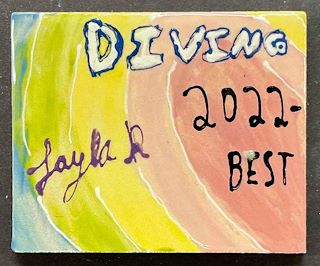 DIVING
2022-
Layla R
BEST